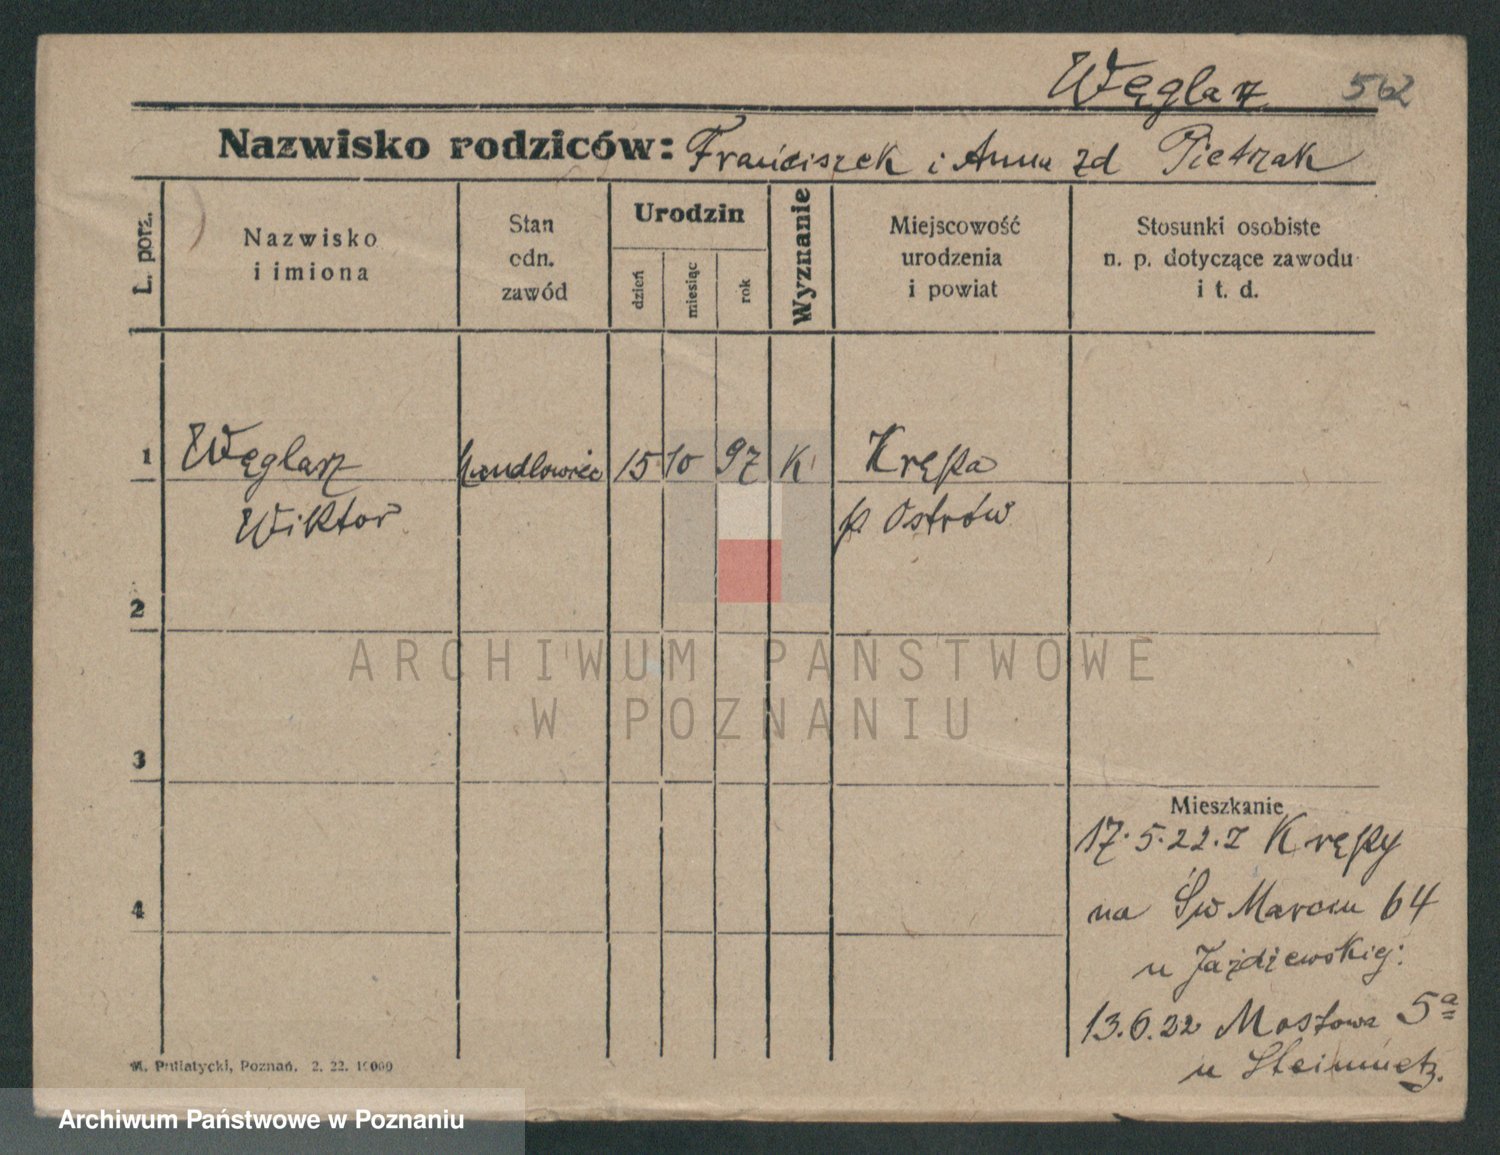 Węglarz 562
Nazwisko rodziców: Franciszek i Anna zd Pietrzak
L. porz.
Nazwisko
i imiona
Stan
cdn.
zawód
Urodzin
dzień
miesiąc
rok
Wyznanie
Miejscowość
urodzenia
i powiat
Stosunki osobiste
n. p. dotyczące zawodu
i t. d.
1 Węglarz handlowiec 15 10 97 K Krępa
Wiktor p. Ostrów
2
ARCHIWUM PAŃSTWOWE
W POZNANIU
3
Mieszkanie
17.5.22. z Krępy
4
na Św Marcin 64
u Jażdżewskiej:
13.6.22 Mostowa 5a
u Steinmetz.
M. Putiatycki, Poznań. 2. 22. 10000
Archiwum Państwowe w Poznaniu